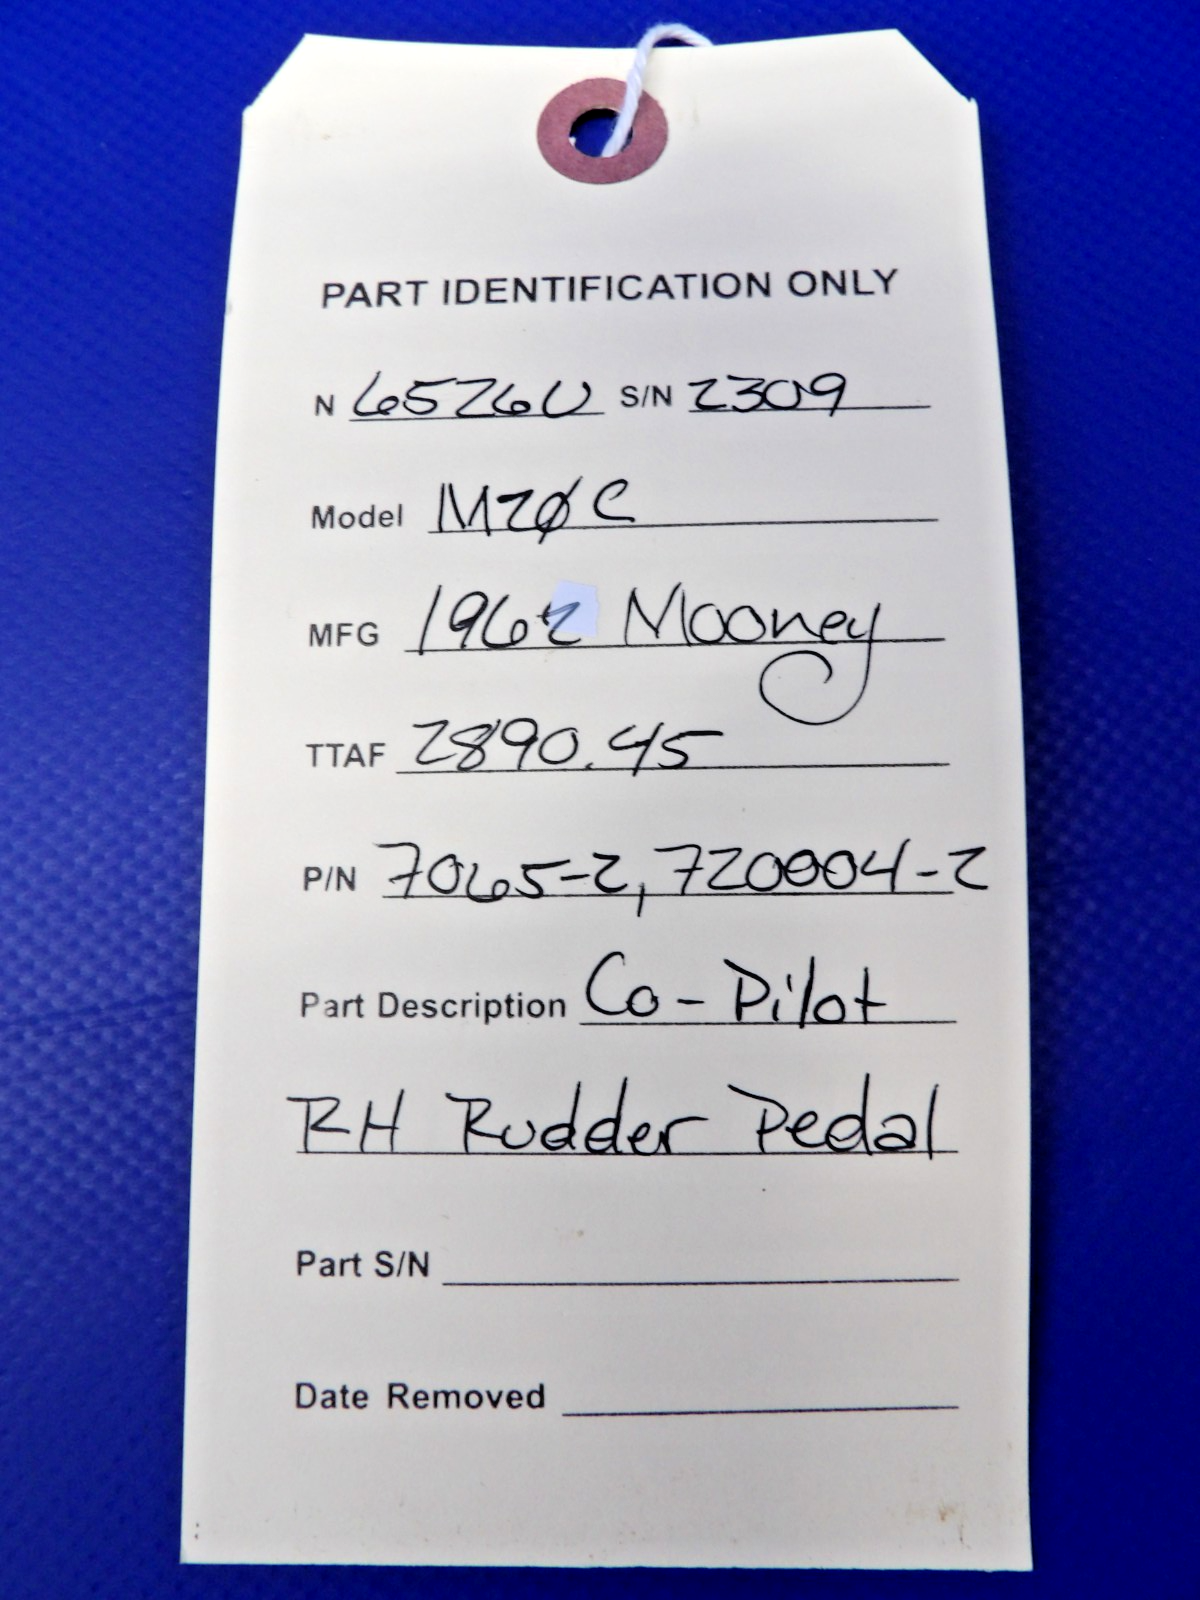 PART IDENTIFICATION ONLY
N 6526U S/N 2309
Model M2ØC
MFG 1962 Mooney
TTAF 2890.45
P/N 7065-2, 720004-2
Part Description Co-Pilot
RH Rudder Pedal
Part S/N
Date Removed